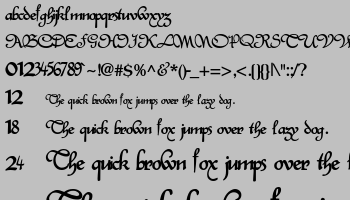 abcdefghijklmnopqrstuvwxyz
ABCDEFGHIJKLMNOPQRSTUVW
0123456789~!@#$%^&*()-_+=>,<.{}[]/\":;/?
12 The quick brown fox jumps over the lazy dog.
18 The quick brown fox jumps over the lazy dog.
24 The quick brown fox jumps over the